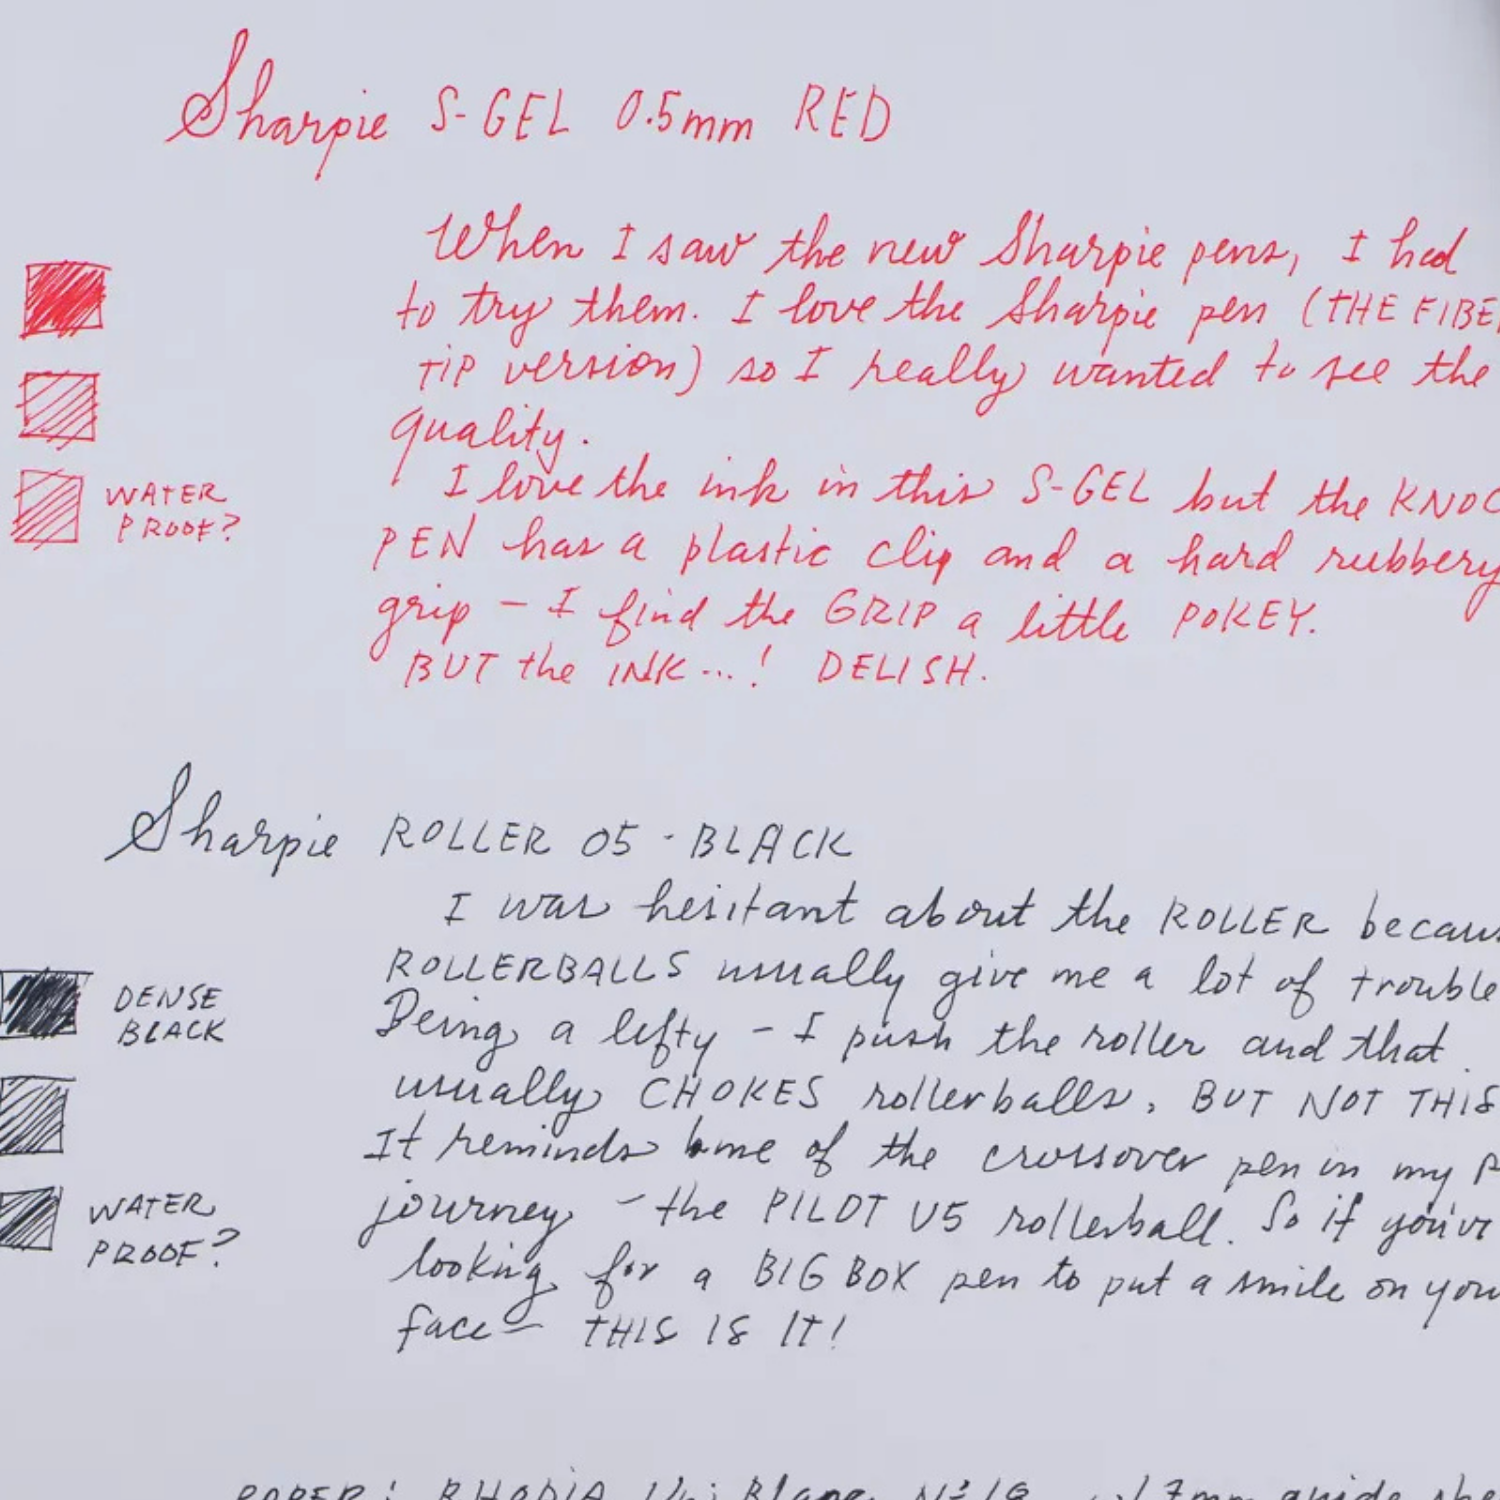 Sharpie S-GEL 0.5mm RED
When I saw the new Sharpie pens, I had
to try them. I love the Sharpie pen (THE FIBE
TIP version) so I really wanted to see the
quality.
I love the ink in this S-GEL but the KNOC
WATER
PROOF?
PEN has a plastic clip and a hard rubbery
grip - I find the GRIP a little POKEY.
BUT the INK...! DELISH.
Sharpie ROLLER 05 - BLACK
I was hesitant about the ROLLER becaus
ROLLERBALLS usually give me a lot of trouble
DENSE
BLACK
Being a lefty - I push the roller and that
usually CHOKES rollerballs. BUT NOT THIS
It reminds me of the crossover pen in my P
WATER
PROOF?
journey - the PILOT V5 rollerball. So if you've
looking for a BIG BOX pen to put a smile on you
face - THIS IS IT!
PAPER: RHODIA Uni Blank No 18 w/ 7mm guide she